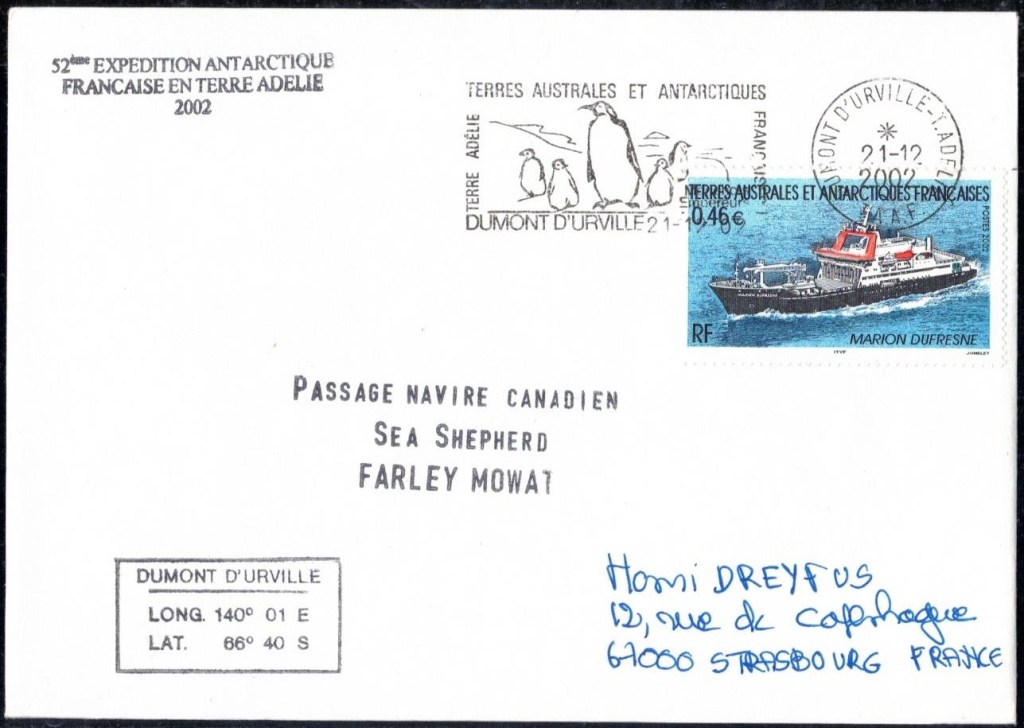 52ème EXPEDITION ANTARCTIQUE
FRANCAISE EN TERRE ADELIE
2002
TERRES AUSTRALES ET ANTARCTIQUES
FRANÇAISES
TERRE ADÉLIE
DUMONT D'URVILLE 21-12 02
DUMONT D'URVILLE-T.ADELIE
21-12
2002
TERRES AUSTRALES ET ANTARCTIQUES FRANÇAISES
0,46€
POSTES 2002
MARION DUFRESNE
RF
MARION DUFRESNE
ITVF
JUMELET
PASSAGE NAVIRE CANADIEN
SEA SHEPHERD
FARLEY MOWAT
DUMONT D'URVILLE
LONG. 140° 01 E
LAT. 66° 40 S
DREYFUS
12, rue de Copenhague
67000 STRASBOURG FRANCE